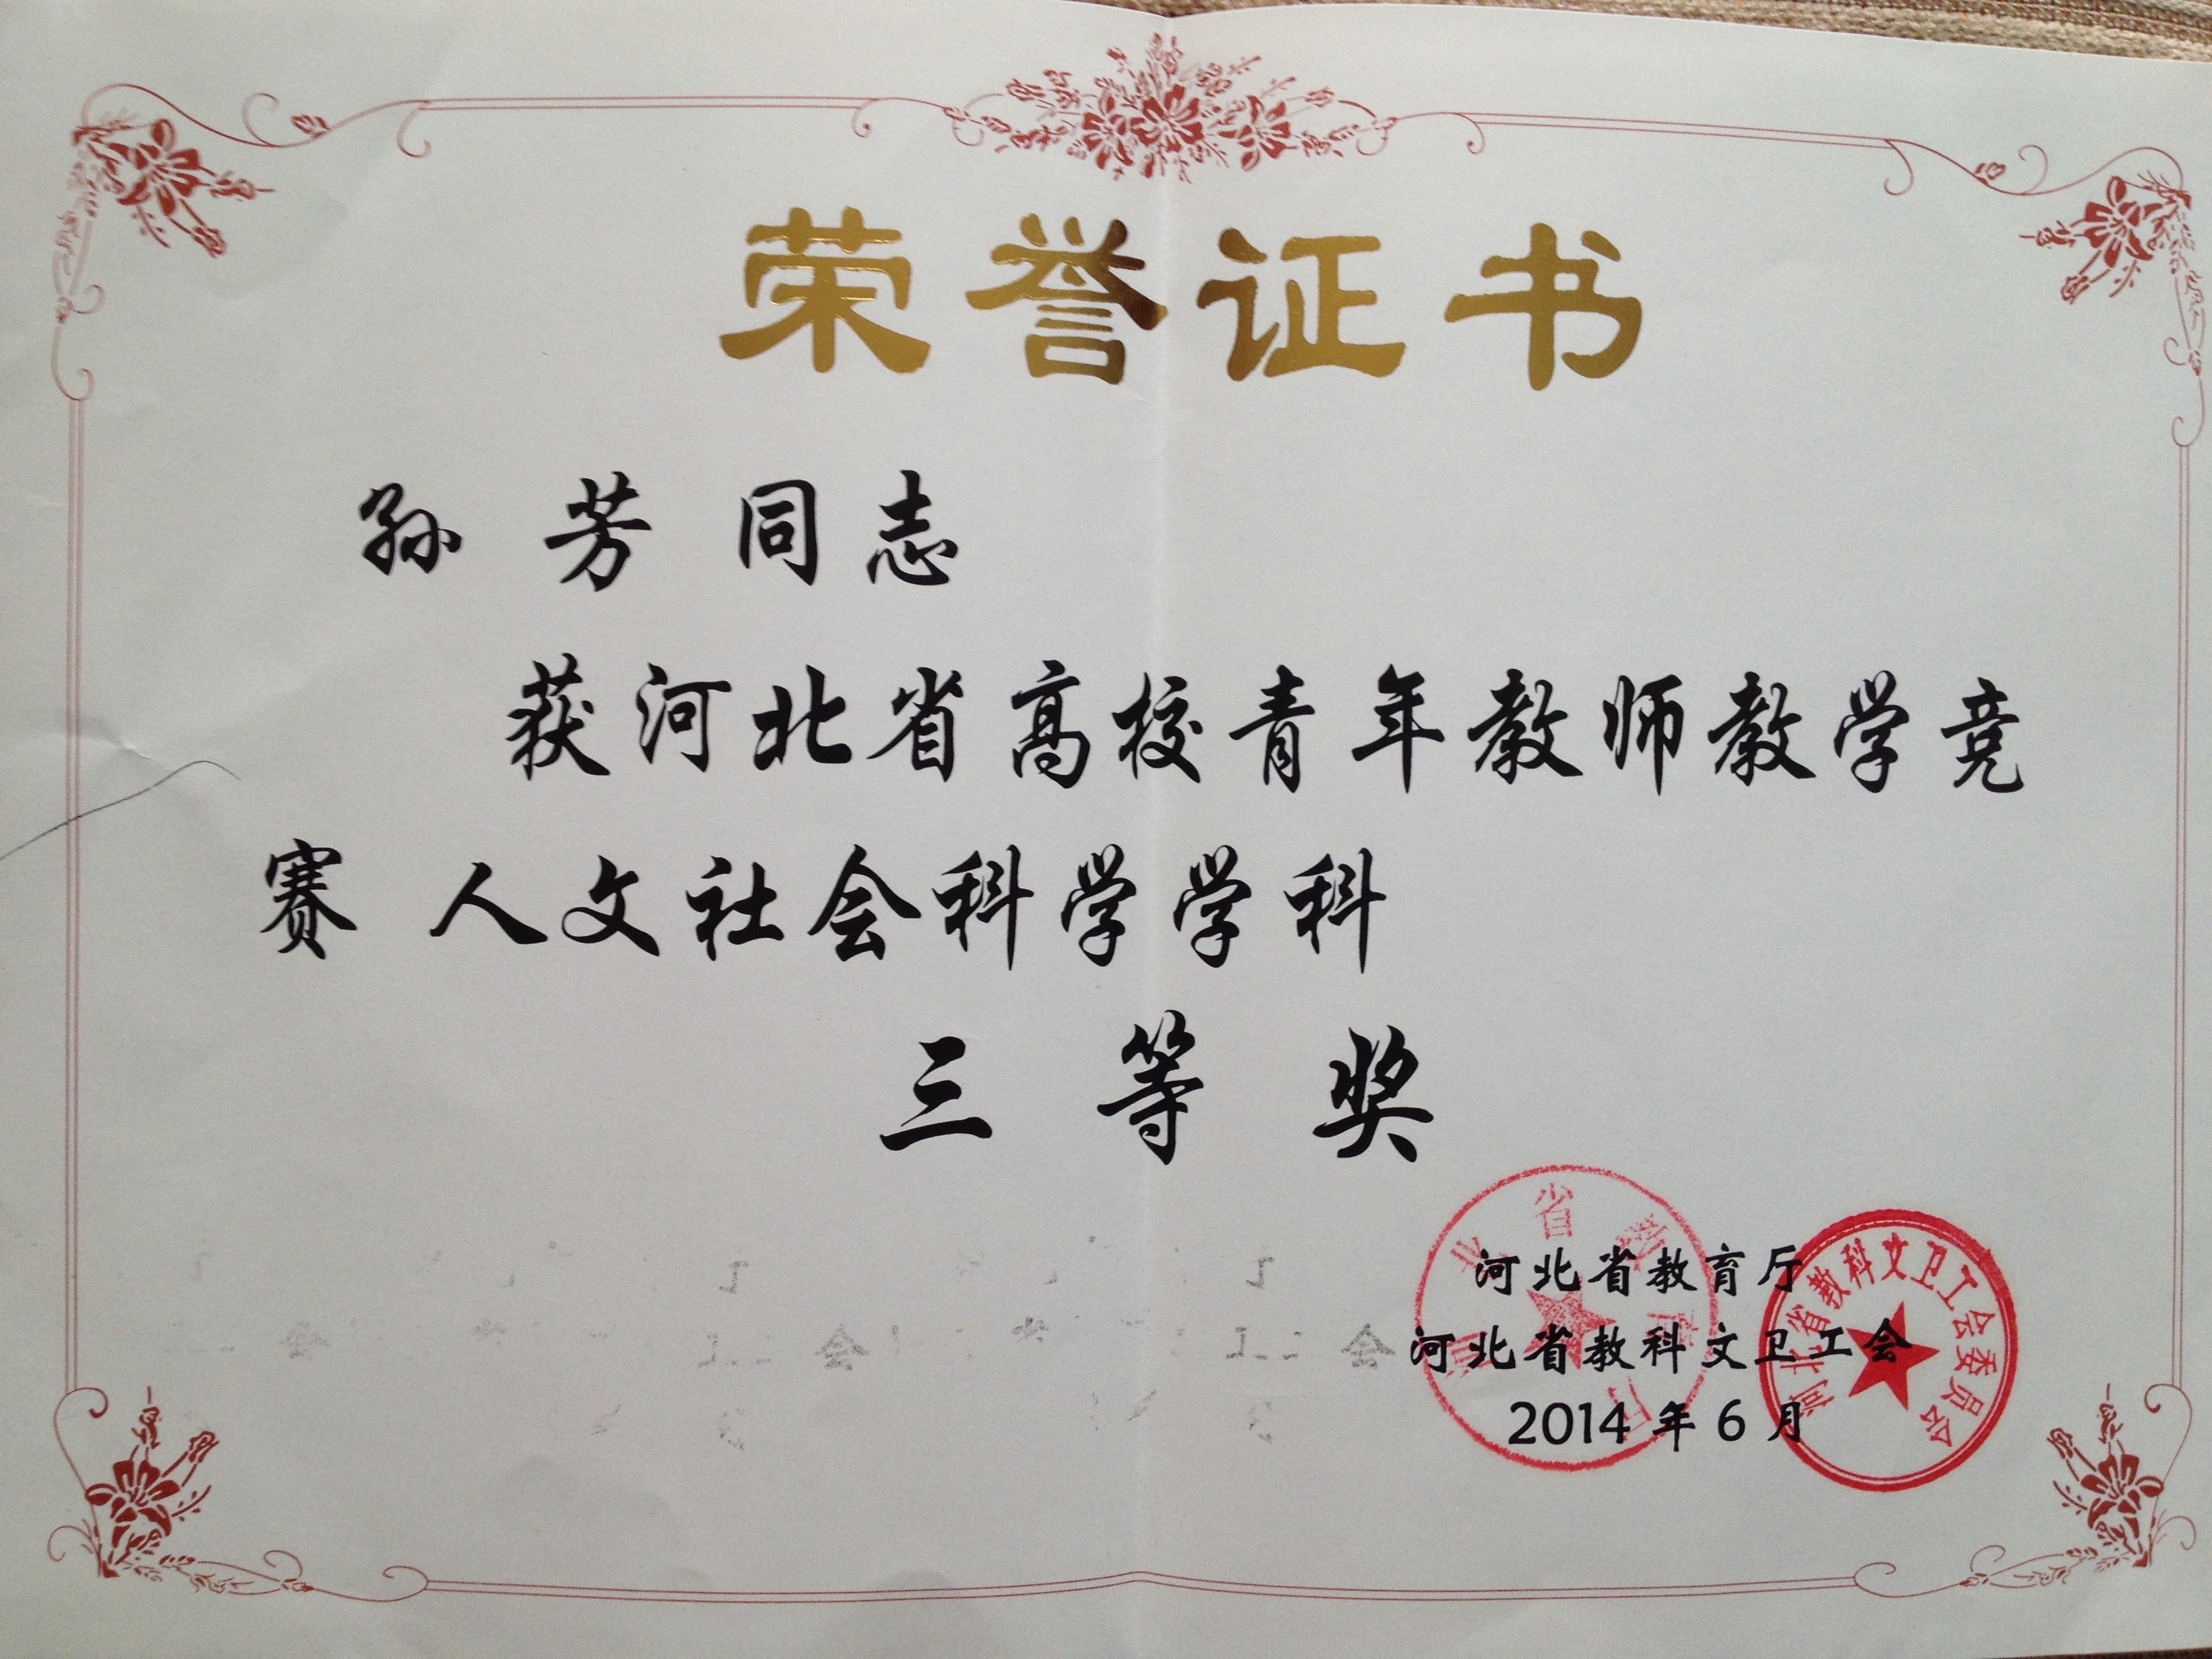 荣誉证书
孙 芳 同志
获河北省高校青年教师教学竞
赛 人文社会科学学科
三 等 奖
河北省教育厅
河北省教科文卫工会
2014年6月
河北省教科文卫工会委员会